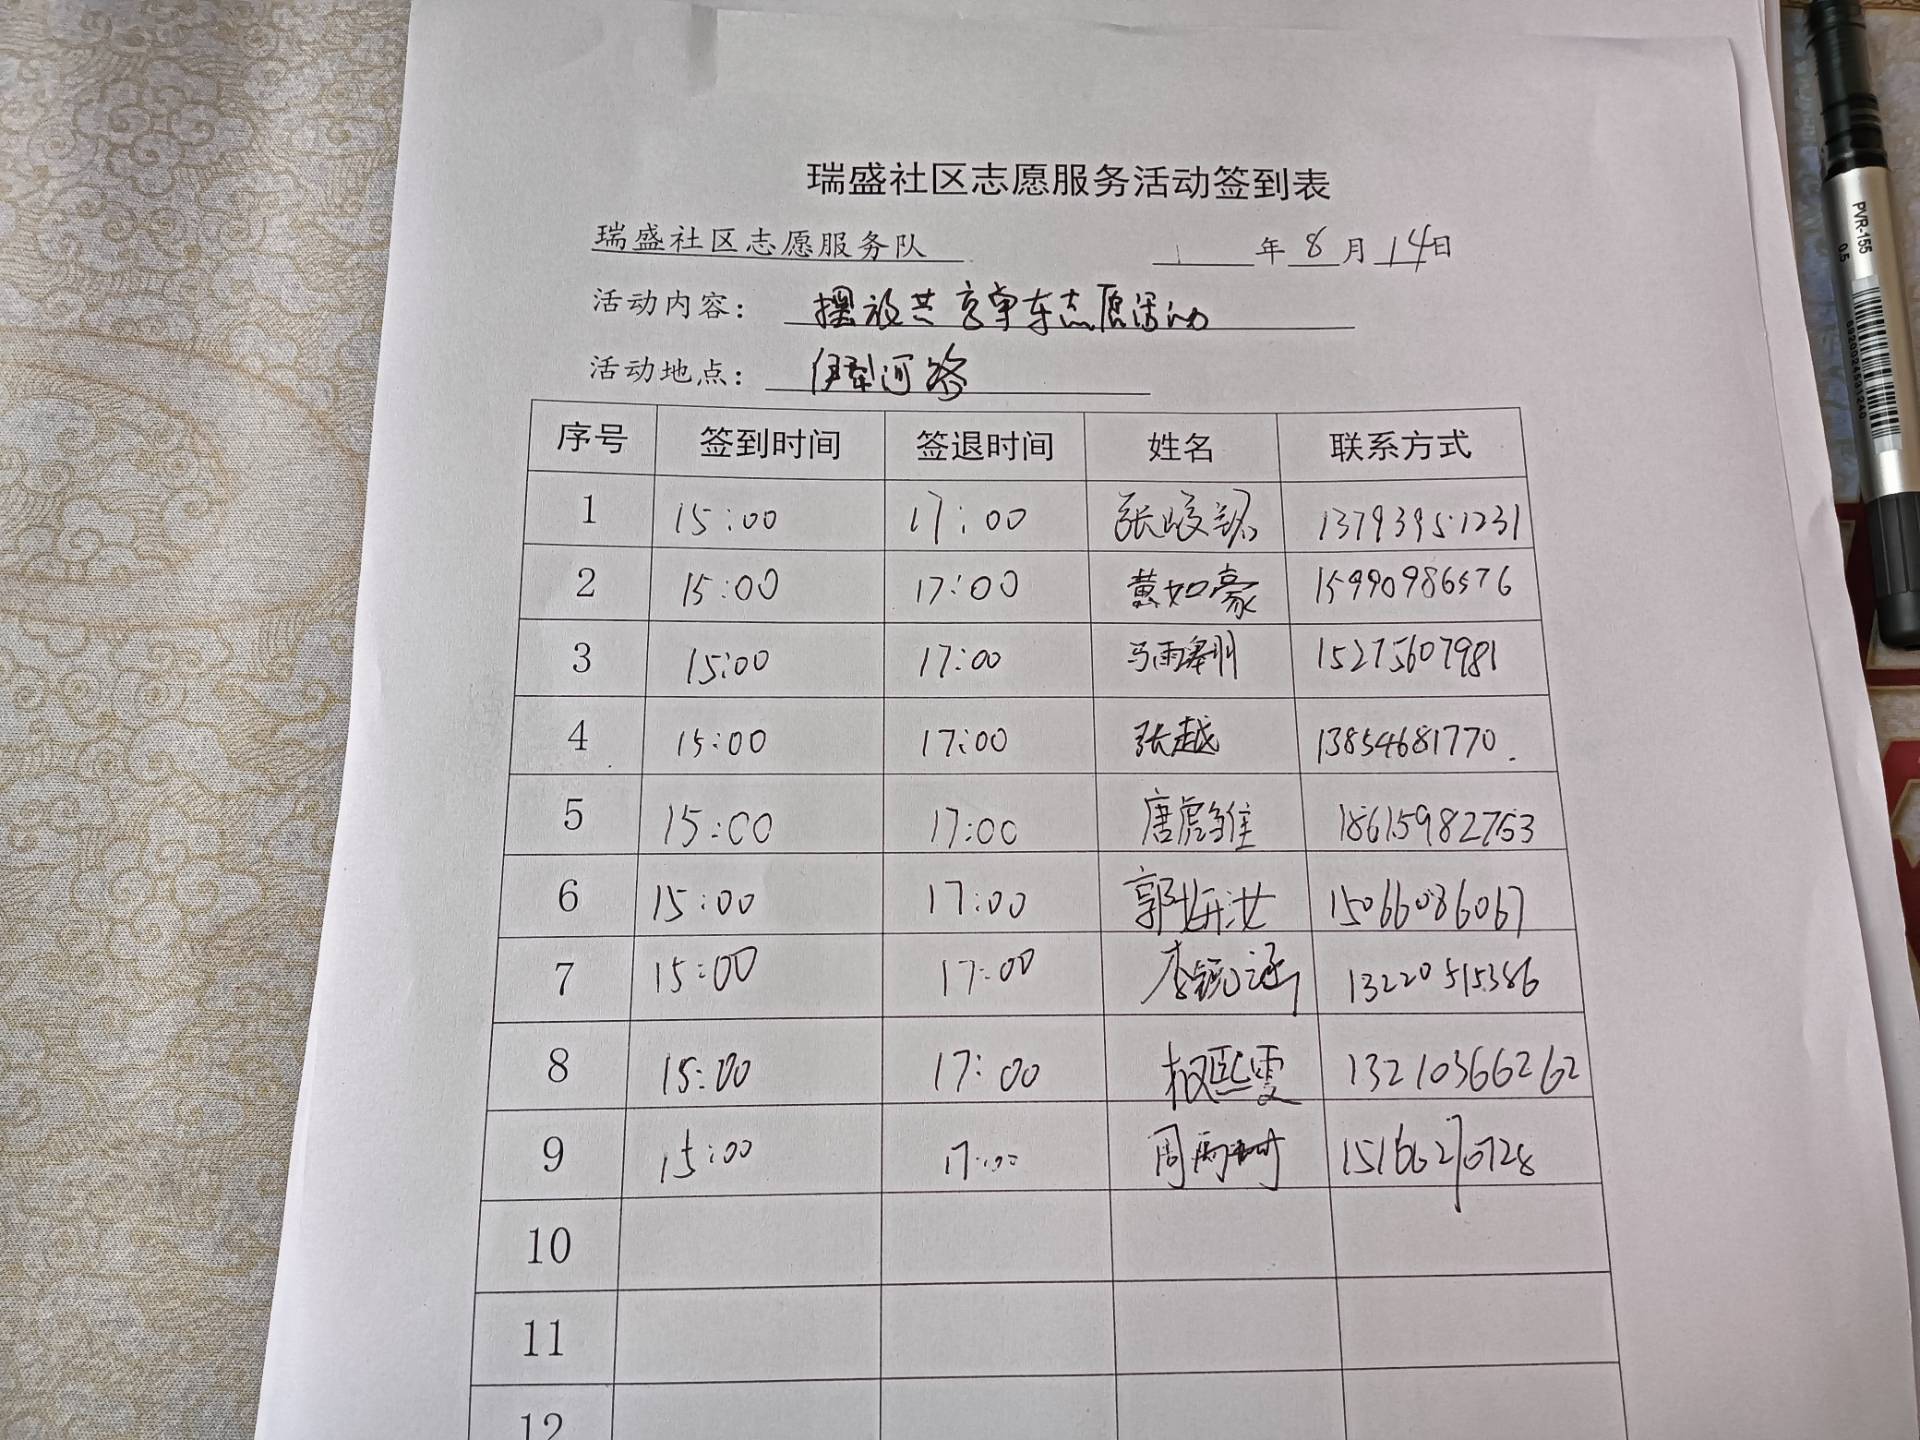 瑞盛社区志愿服务活动签到表
瑞盛社区志愿服务队 年 8 月 14 日
活动内容： 摆放共享单车志愿活动
活动地点： 伊犁河路
序号 签到时间 签退时间 姓名 联系方式
1 15:00 17:00 张皎铭 13793951231
2 15:00 17:00 黄如豪 15990986576
3 15:00 17:00 马雨 15275607981
4 15:00 17:00 张越 13854681770.
5 15:00 17:00 唐彪 18615982753
6 15:00 17:00 郭妍汝 15066086067
7 15:00 17:00 李锐涵 13220515386
8 15:00 17:00 权熙雯 13210366262
9 15:00 17:00 周雨 15166270728
10
11
12
PVR-155
0.5